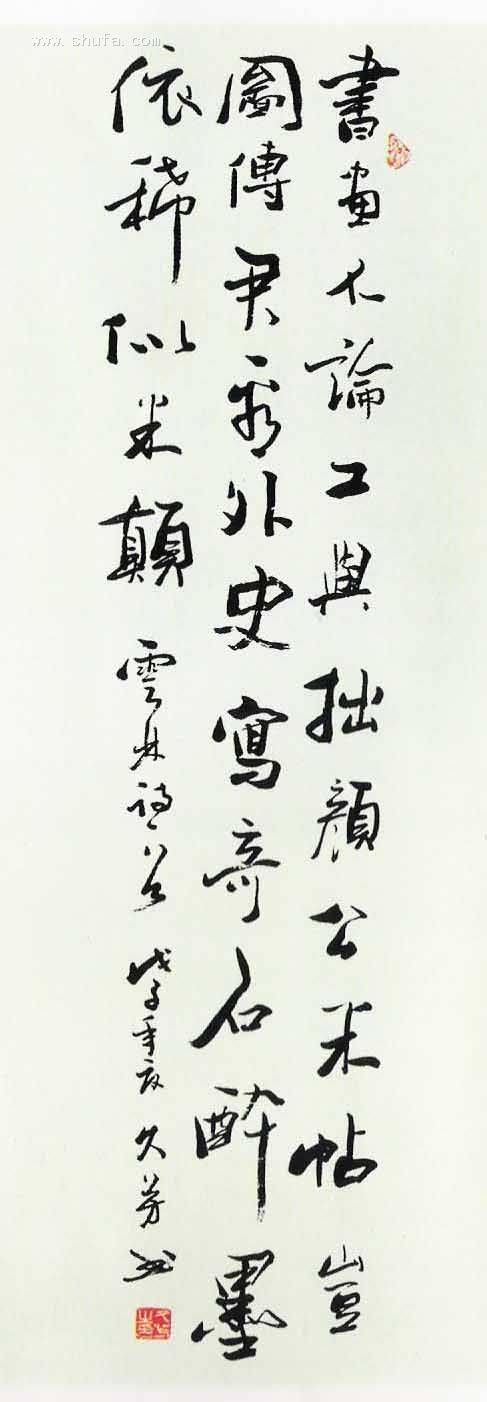 www.shufa.com
書畫不論工與拙顏公米帖豈
圖傳君看外史寫奇石醉墨
依稀似米顛 雲林詩一首 戊子年 久芳